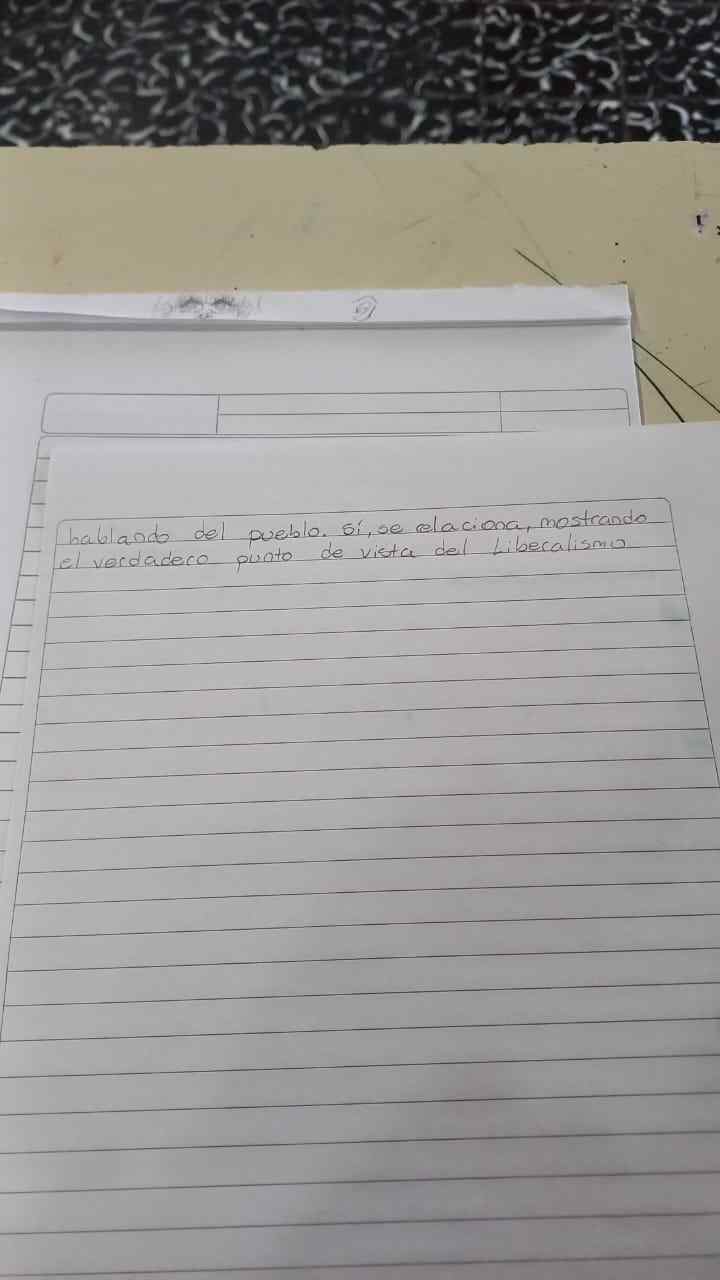 hablando del pueblo. Sí, se relaciona, mostrando
el verdadero punto de vista del Liberalismo